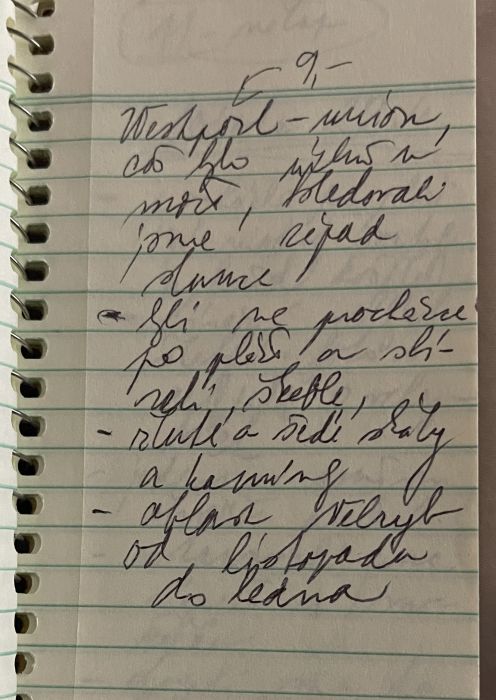 9,-
Westport - 
což bylo u
moře, sledovali
jsme západ
slunce
- šli na procházce
po pláži a sbí-
rali škeble,
- žluté a šedé skály
a kameny
- oblast velryb
od listopadu
do ledna